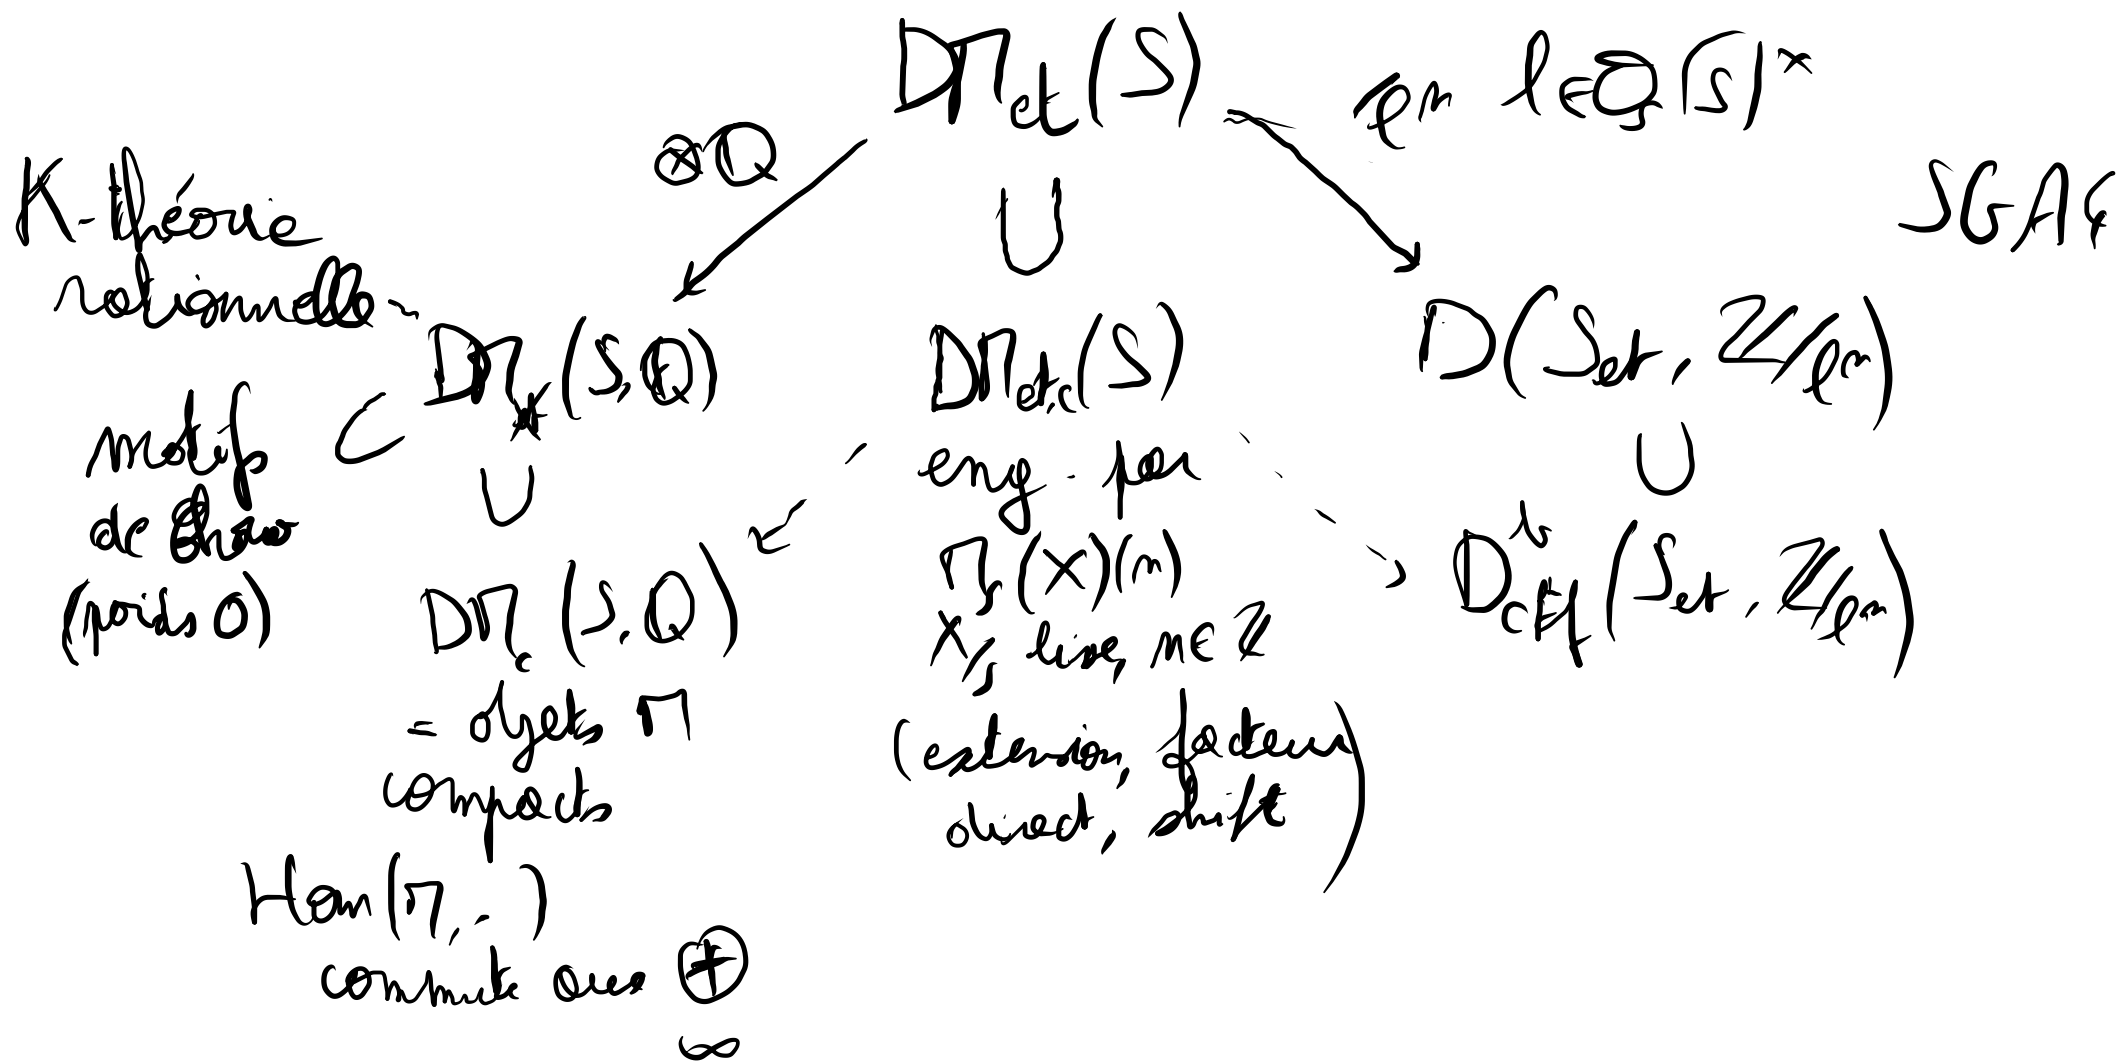 DM_et(S)
ℓ^n ℓ∈O_S(S)^×
⊗Q
SGA4
K-théorie
rationnelle
∪
DM_x(S,Q)
DM_et,c(S)
D(S_et, Z/ℓ^n)
motifs
de Chow
(poids 0)
⊂
∪
eng. par
∪
DM_c(S,Q)
M_S(X)(n)
D^b_ctf(S_et, Z/ℓ^n)
X/S lisse, n∈Z
= objets M
compacts
(extension, facteur
direct, shift)
Hom(M,-)
commute aux ⊕
∞